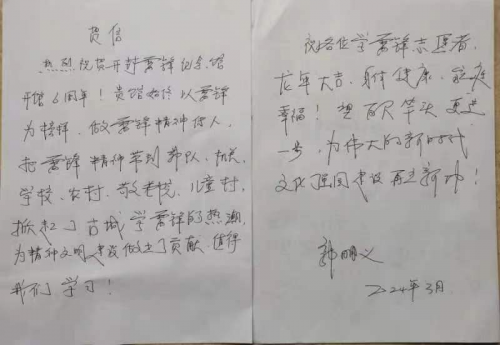 贺信
热烈祝贺开封雷锋纪念馆
开馆6周年！贵馆始终以雷锋
为榜样，做雷锋精神传人，
把雷锋精神带到部队、机关、
学校、农村、敬老院、儿童村，
掀起了古城学雷锋的热潮，
为精神文明建设做出了贡献，值得
我们学习！
祝各位学雷锋志愿者，
龙年大吉，身体健康，家庭
幸福！望百尺竿头更进
一步，为伟大的新时代
文化强国建设再立新功！
郭明义
2024年3月